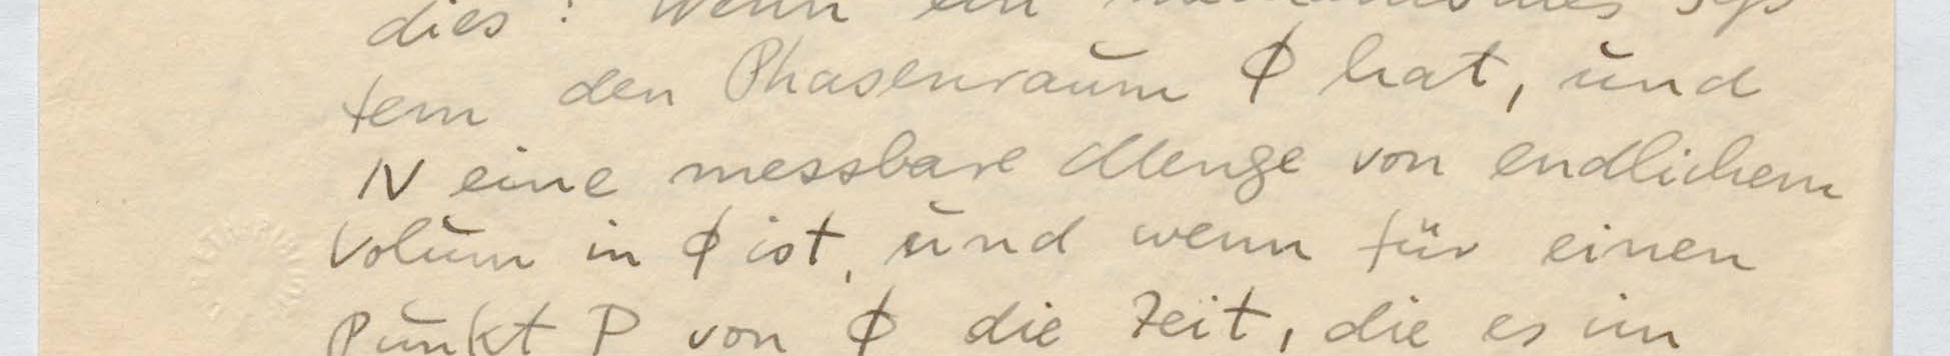 dies: Wenn ein mechanisches Sys
tem den Phasenraum Φ hat, und
N eine messbare Menge von endlichem
Volum in Φ ist, und wenn für einen
Punkt P von Φ die Zeit, die es im